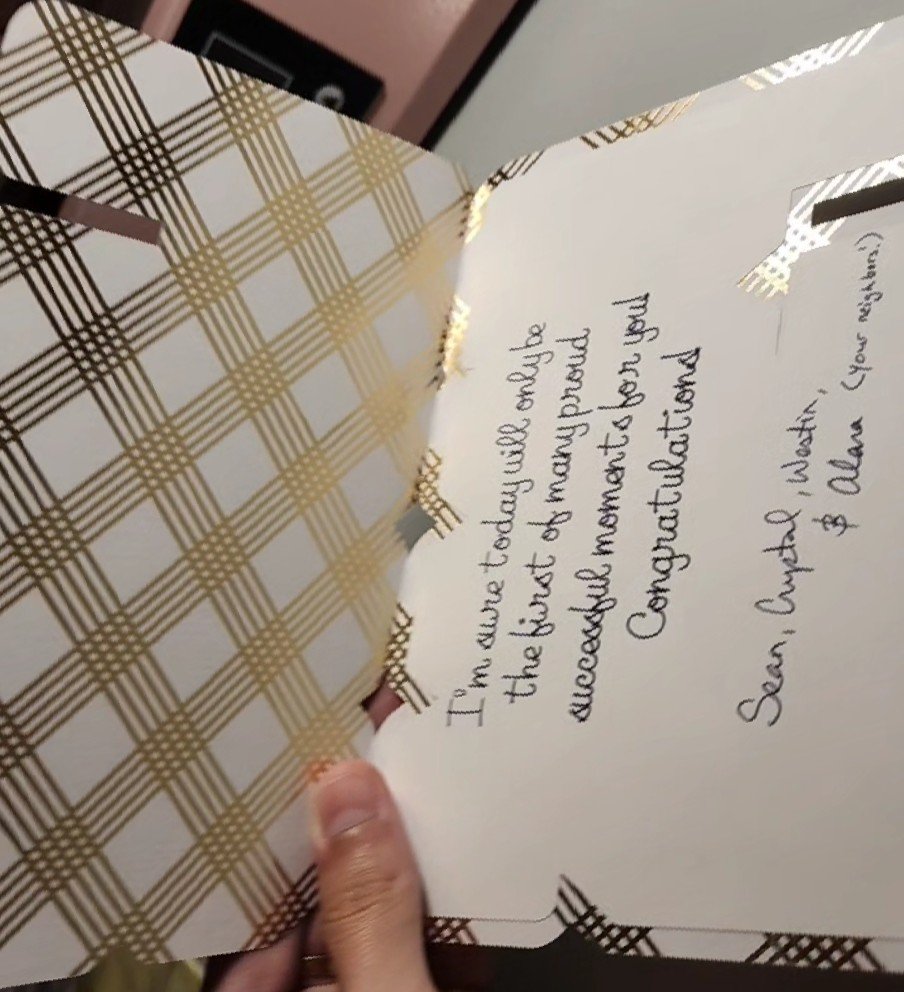 I'm sure today will only be
the first of many proud
successful moments for you!
Congratulations
Sean, Crystal, Westin,
& Alana (your neighbors!)